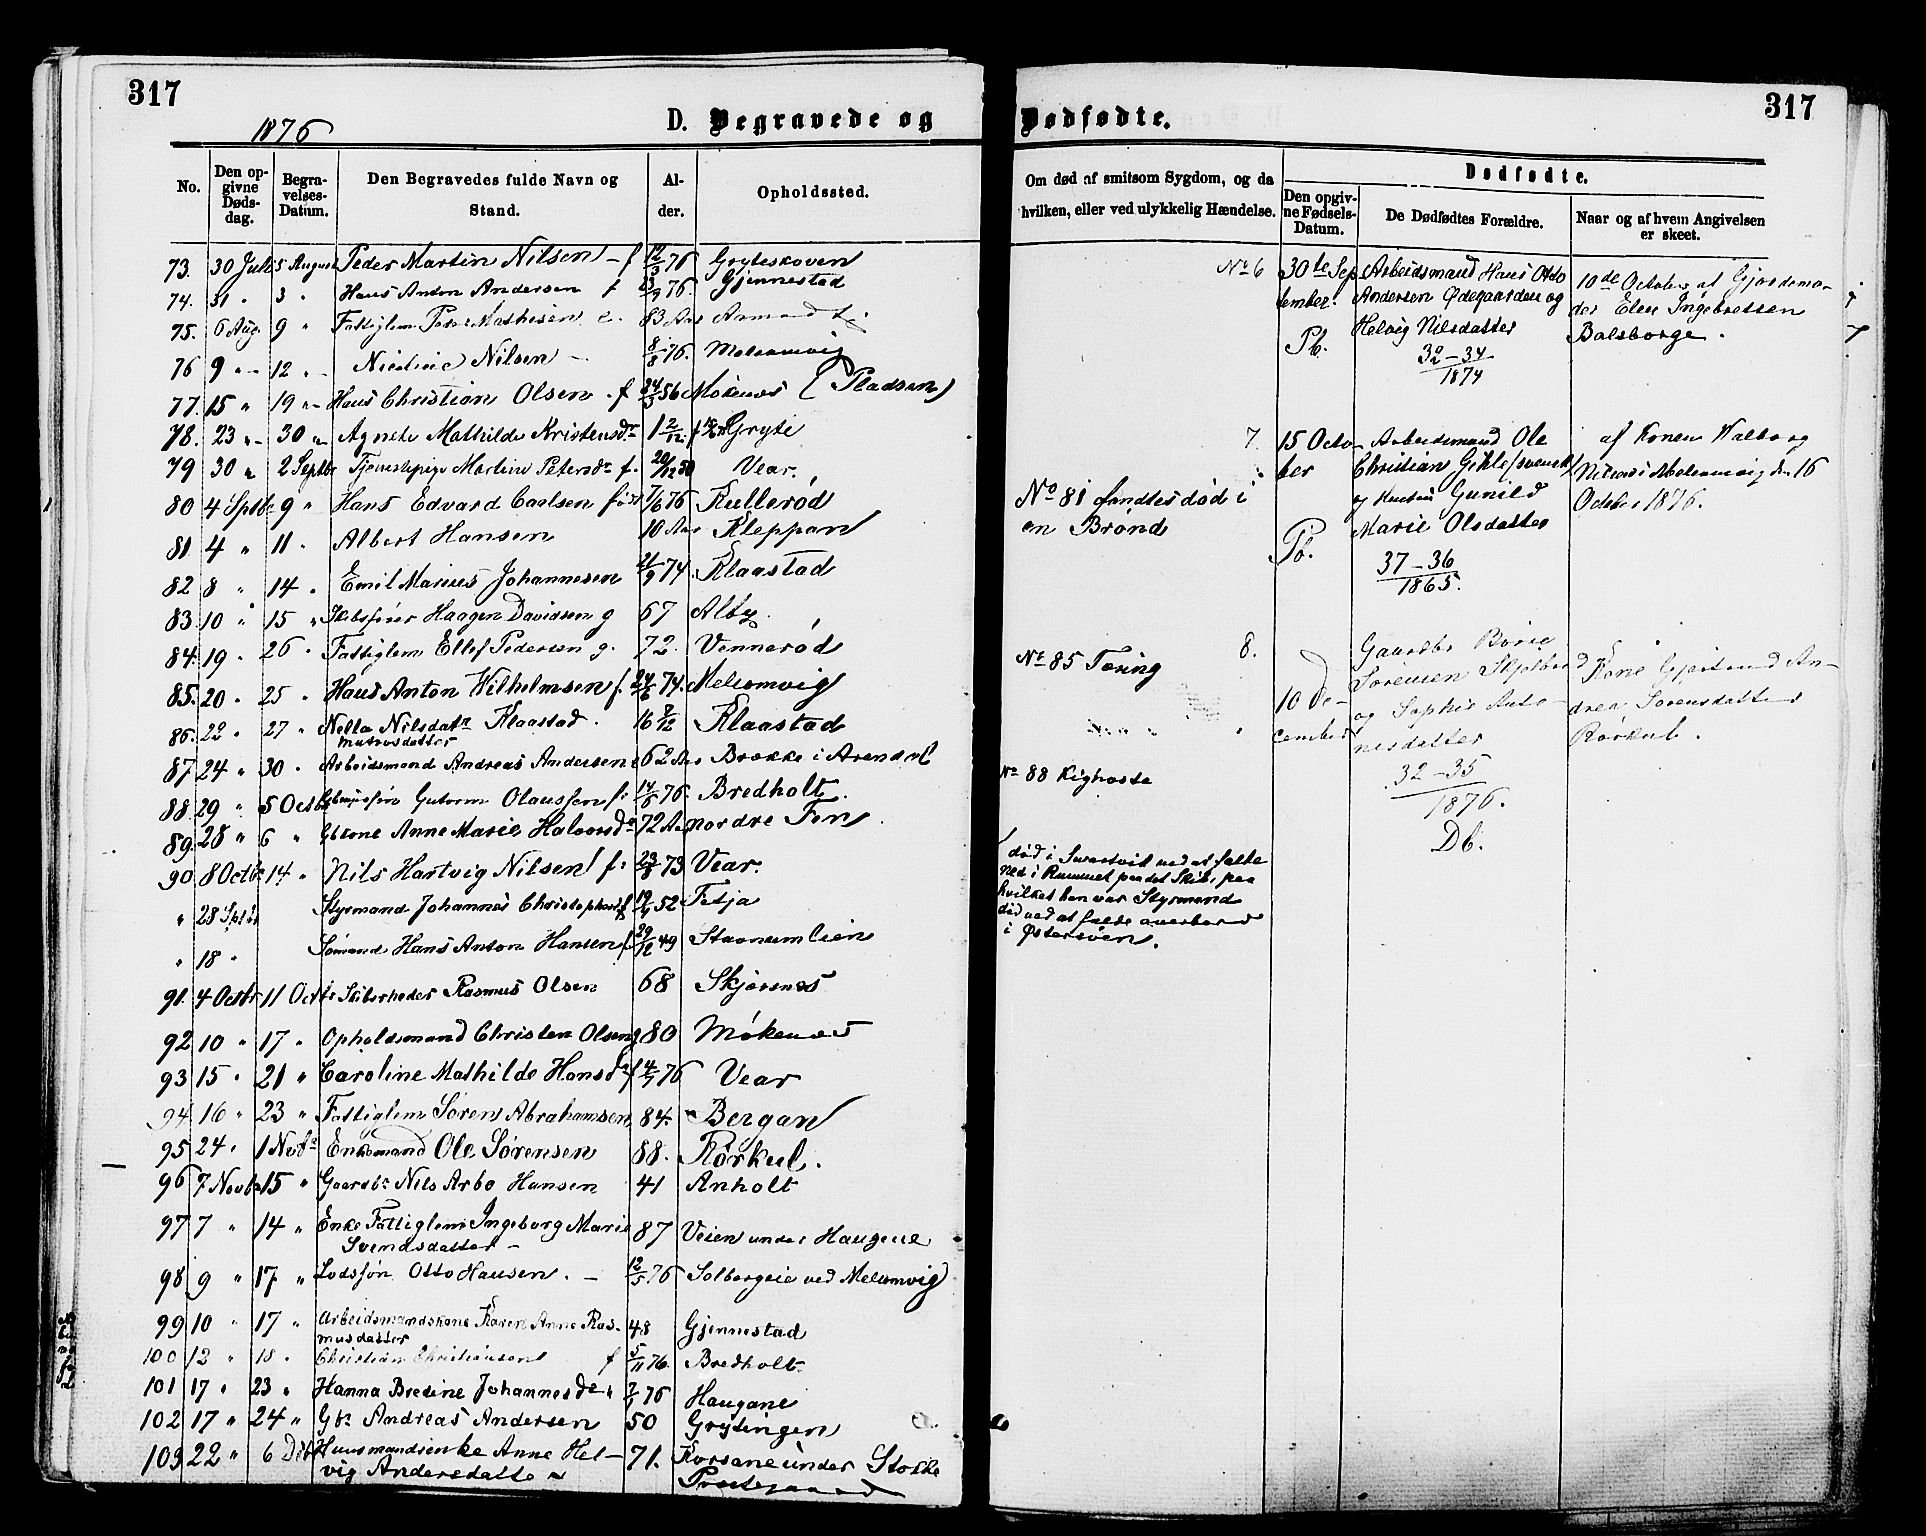 317
1876
D. Begravede og
No.
Den opgivne Dødsdag.
Begravelses-Datum.
Den Begravedes fulde Navn og Stand.
Alder.
Opholdssted.
73. 30 Juli 5 August Peder Martin Nilsen f 12/3 76 Gryteskoven
74. 31 " 3 " Hans Anton Andersen f 76. Gjennestad
75. 6 Aug. 9 " Fattiglem Mathisen 83 Aar
76 9 " 12 " Nilsen 8/8 76. Melsomvig
77. 15 " 19 " Hans Christian Olsen f 24/3 56 Mökenæs (Pladsen)
78. 23 " 30 " Agnete Mathilde Kristensdr 1 2/12 Gryte
79 30 " 2 Septbr Tjenestepige Martine Petersdr f. Vear.
80 4 Sptbr 9 " Hans Edvard Carlsen född 76 Rullerød
81 4 " 11 " Albert Hansen 10 Aar Kleppan
82 8 " 14 " Emil Marius Johannesen 21/9 74 Klaastad
83 10 " 15 " Skibsfører Haagen Davidsen g 67 Alby
84. 19 " 26 " Fattiglem Ellef Pedersen g. 72. Vennerød
85. 20 " 25 " Hans Anton Wilhelmsen f. 24/6 74. Melsomvig
86. 22 " 27 " Nella Nilsdatr Klaastad. 16 Klaastad
Matrosdatter
87 24 " 30 " Arbeidsmand Andreas Andersen 62 Aar Brække i Arendal
88. 29 " 5 Octbr Gutorm Olaussen f. 76. Bredholt
89. 28 " 6 " Gbkone Anne Marie Halvorsdr 72 Aar nordre Fen
90 8 Octbr 14 " Nils Hartvig Nilsen f. 73 Vear.
" 28 Sptbr Styrmand Johannes 52 Fetja
" 18 " Sömand Hans Anton Hansen f 29/12 49
91. 4 Octbr 11 Octbr Skibsrheder Rasmus Olsen 68 Skjærsnæs
92 10 " 17 " Opholdsmand Christen Olsen g 80 Mökenæs
93 15 " 21 " Caroline Mathilde Hansdr f 4/7 76 Vear
94 16 " 23 " Fattiglem Sören Abrahamsen 84. Bergan
95 24 " 1 Novbr Enkemand Ole Sørensen 88. Rørkul.
96 7 Novbr 15 " Gaardbr Nils Arbo Hansen 41 Anholt
97 7 " 14 " Enke Fattiglem Ingeborg Marie 87 Veien under Haugene
Svendsdatter
98 9 " 17 " Lodssøn Otto Hansen. 12/5 76 Solbergeie ved Melsomvig
99 10 " 17 " Arbeidsmandskone Karen Anne Ras- 48 Gjennestad
musdatter
100 12 " 18 " Christian Christiansen f 5/11 76. Bredholt
101 17 " 23 " Hanna Bredine Johannesdr 76 Haugane
102 17 " 24 " Gbr Andreas Andersen 50 Grytingen
103 22 " 6 Dcbr Huusmandsenke Anne Hel- 71. Korsane under Stokke
vig Andersdatter Præstegaard
317
Dødfødte.
Om død af smitsom Sygdom, og da
hvilken, eller ved ulykkelig Hændelse.
Dødfødte.
Den opgivne Fødsels-Datum.
De Dødfødtes Forældre.
Naar og af hvem Angivelsen er skeet.
No 6 30te Sep Arbeidsmand Hans Otto 10de October af Gjordemo-
tember. Andersen Ødegaarden og der Elen Ingebretsen
Helvig Nilsdatter Balsborge.
Pb. 32 – 34
1874
7. 15 Octo Arbeidsmand Ole af Konen Walborg
ber Christian Gihle (svensk) Nilsen i Melsomvig den 16
og Hustru Gunild October 1876.
Marie Olsdatter
Pb. 37 – 36
1865.
No 81 fandtes død i
en Brønd
8. Gaardbr Börre
Sörensen Kone Gjertrud An-
10 De- og Sophie Anto- drea Sorensdatter
cember nisdatter Rørkul.
32 – 35
1876.
Db.
No 85 Tæring
" " "
No 88 Kighoste
død i ved at falde
ned i Rummet paa det Skib, paa
hvilket han var Styrmand
død ved at falde overbord
i Østersöen.